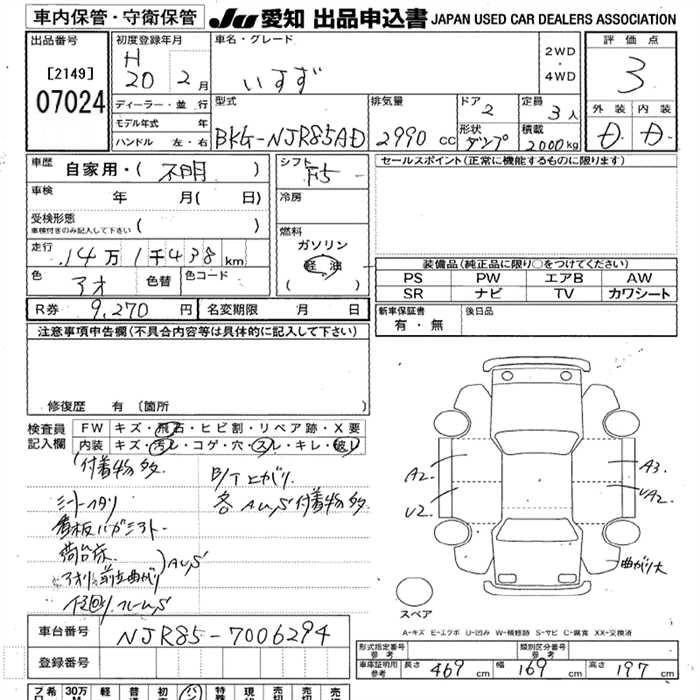 車内保管・守衛保管 JU 愛知 出品申込書 JAPAN USED CAR DEALERS ASSOCIATION
出品番号
[2149]
07024
初度登録年月
H
20 2月
車名・グレード
いすず
2WD
・
4WD
評価点
3
ディーラー・並行
モデル年式 年
ハンドル 左・右
型式
BKG-NJR85AD
排気量
2990 cc
ドア
2
形状
ダンプ
定員
3人
積載
2000kg
外装 内装
D D
車歴
自家用・( 不明 )
車検
年 月( 日)
受検形態
車検付きのみ記入して下さい ( )
走行
14万1千438km
色
アオ
色替
色コード
シフト
F5
冷房
燃料
ガソリン
軽油
( )
セールスポイント(正常に機能するものに限ります)
装備品(純正品に限り○をつけてください)
PS PW エアB AW
SR ナビ TV カワシート
R券 9,270円
名変期限 月 日
新車保証書
有・無
後日品
注意事項申告欄(不具合内容等は具体的に記入して下さい)
修復歴 有 〔箇所 〕
検査員
記入欄
FW キズ・飛石・ヒビ割・リペア跡・X要
内装 キズ・汚レ・コゲ・穴・スレ・キレ・破レ
付着物多
シートヘタリ
看板バガシアト
荷台床
アオリ 前立曲がり
AUS
下回りフレームS
B/T上がり
各AUS付着物多
A2
U2
A3
UA2
曲がり大
スペア
A-キズ E-エクボ U-凹み W-補修跡 S-サビ C-腐食 XX-交換済
車台番号 NJR85-7006294
登録番号
形式指定番号
参考
類別区分番号
参考
車庫証明用
参考
長さ 469 cm 幅 169 cm 高さ 197 cm